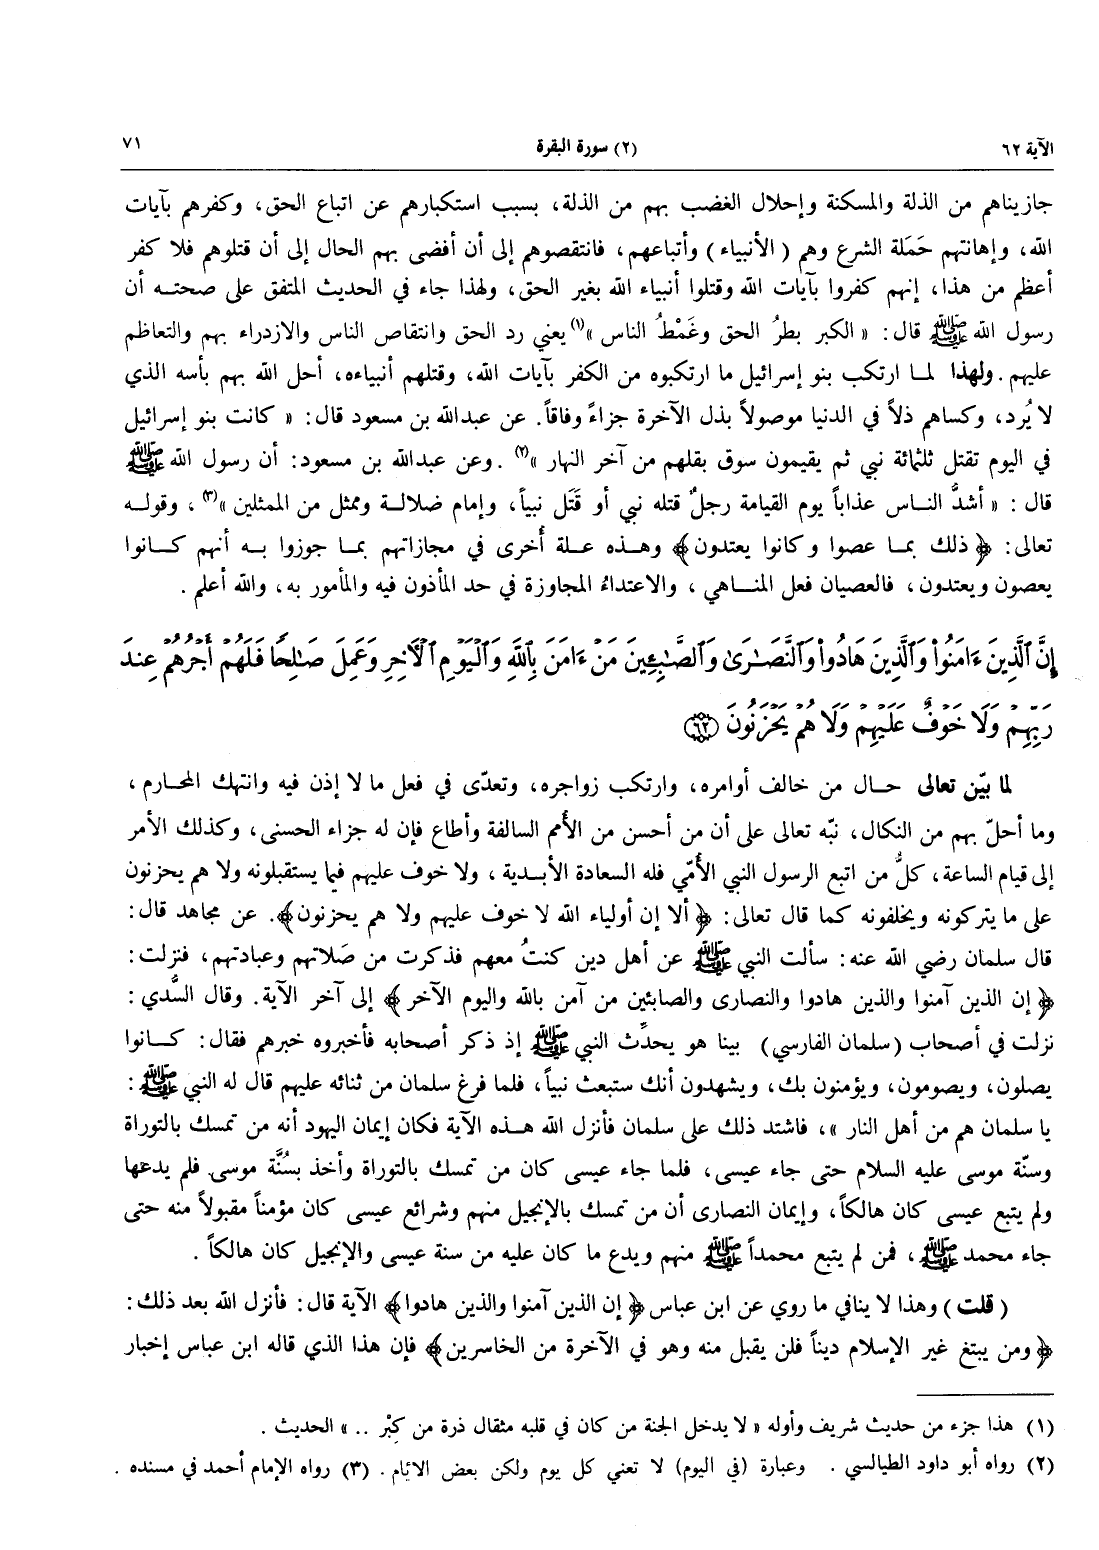 الآية ٦٢
(٢) سورة البقرة
٧١
جازيناهم من الذلة والمسكنة وإحلال الغضب بهم من الذلة، بسبب استكبارهم عن اتباع الحق، وكفرهم بآيات
الله، وإهانتهم حَمَلة الشرع وهم (الأنبياء) وأتباعهم، فانتقصوهم إلى أن أفضى بهم الحال إلى أن قتلوهم فلا كفر
أعظم من هذا، إنهم كفروا بآيات الله وقتلوا أنبياء الله بغير الحق، ولهذا جاء في الحديث المتفق على صحته أن
رسول الله ﷺ قال: « الكبر بطرُ الحق وغَمْطُ الناس »(١) يعني رد الحق وانتقاص الناس والازدراء بهم والتعاظم
عليهم. ولهذا لما ارتكب بنو إسرائيل ما ارتكبوه من الكفر بآيات الله، وقتلهم أنبياءه، أحل الله بهم بأسه الذي
لا يُرد، وكساهم ذلاً في الدنيا موصولاً بذل الآخرة جزاءً وفاقاً. عن عبدالله بن مسعود قال: « كانت بنو إسرائيل
في اليوم تقتل ثلثمائة نبي ثم يقيمون سوق بقلهم من آخر النهار »(٢). وعن عبدالله بن مسعود: أن رسول الله ﷺ
قال: « أشدُّ الناس عذاباً يوم القيامة رجلٌ قتله نبي أو قَتَل نبياً، وإمام ضلالة وممثل من الممثلين »(٣)، وقوله
تعالى: ﴿ذلك بما عصوا وكانوا يعتدون﴾ وهذه علة أُخرى في مجازاتهم بما جوزوا به أنهم كانوا
يعصون ويعتدون، فالعصيان فعل المناهي، والاعتداءُ المجاوزة في حد المأذون فيه والمأمور به، والله أعلم.
إِنَّ ٱلَّذِينَ ءَامَنُوا۟ وَٱلَّذِينَ هَادُوا۟ وَٱلنَّصَـٰرَىٰ وَٱلصَّـٰبِـِٔينَ مَنْ ءَامَنَ بِٱللَّهِ وَٱلْيَوْمِ ٱلْـَٔاخِرِ وَعَمِلَ صَـٰلِحًا فَلَهُمْ أَجْرُهُمْ عِندَ
رَبِّهِمْ وَلَا خَوْفٌ عَلَيْهِمْ وَلَا هُمْ يَحْزَنُونَ ﴿٦٢﴾
لما بيّن تعالى حال من خالف أوامره، وارتكب زواجره، وتعدّى في فعل ما لا إذن فيه وانتهك المحارم،
وما أحلّ بهم من النكال، نبّه تعالى على أن من أحسن من الأُمم السالفة وأطاع فإن له جزاء الحسنى، وكذلك الأمر
إلى قيام الساعة، كلُّ من اتبع الرسول النبي الأُمّي فله السعادة الأبدية، ولا خوف عليهم فيما يستقبلونه ولا هم يحزنون
على ما يتركونه ويخلفونه كما قال تعالى: ﴿ألا إن أولياء الله لا خوف عليهم ولا هم يحزنون﴾. عن مجاهد قال:
قال سلمان رضي الله عنه: سألت النبي ﷺ عن أهل دين كنتُ معهم فذكرت من صَلاتهم وعبادتهم، فنزلت:
﴿إن الذين آمنوا والذين هادوا والنصارى والصابئين من آمن بالله واليوم الآخر﴾ إلى آخر الآية. وقال السُّدي:
نزلت في أصحاب (سلمان الفارسي) بينا هو يحدِّث النبي ﷺ إذ ذكر أصحابه فأخبروه خبرهم فقال: كانوا
يصلون، ويصومون، ويؤمنون بك، ويشهدون أنك ستبعث نبياً، فلما فرغ سلمان من ثنائه عليهم قال له النبي ﷺ:
يا سلمان هم من أهل النار »، فاشتد ذلك على سلمان فأنزل الله هذه الآية فكان إيمان اليهود أنه من تمسك بالتوراة
وسنّة موسى عليه السلام حتى جاء عيسى، فلما جاء عيسى كان من تمسك بالتوراة وأخذ بسُنَّة موسى فلم يدعها
ولم يتبع عيسى كان هالكاً، وإيمان النصارى أن من تمسك بالإنجيل منهم وشرائع عيسى كان مؤمناً مقبولاً منه حتى
جاء محمد ﷺ، فمن لم يتبع محمداً ﷺ منهم ويدع ما كان عليه من سنة عيسى والإنجيل كان هالكاً.
(قلت) وهذا لا ينافي ما روي عن ابن عباس ﴿إن الذين آمنوا والذين هادوا﴾ الآية قال: فأنزل الله بعد ذلك:
﴿ومن يبتغ غير الإسلام ديناً فلن يقبل منه وهو في الآخرة من الخاسرين﴾ فإن هذا الذي قاله ابن عباس إخبار
(١) هذا جزء من حديث شريف وأوله « لا يدخل الجنة من كان في قلبه مثقال ذرة من كِبْر .. » الحديث.
(٢) رواه أبو داود الطيالسي. وعبارة (في اليوم) لا تعني كل يوم ولكن بعض الايّام. (٣) رواه الإمام أحمد في مسنده.